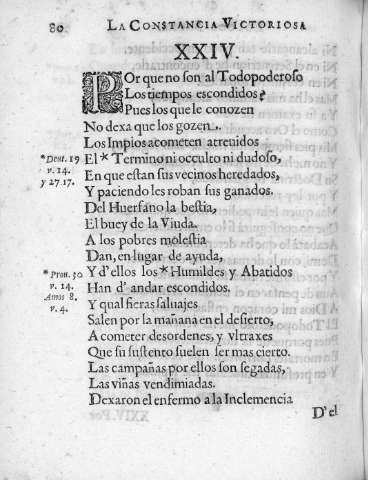 80 LA CONSTANCIA VICTORIOSA
XXIV
POr que no son al Todopoderoso
Los tiempos escondidos?
Pues los que le conozen
No dexa que los gozen.
Los Impios acometen atreuidos
* Deut. 19 El * Termino ni occulto ni dudoso,
v. 14. En que estan sus vecinos heredados,
y 27.17. Y paciendo les roban sus ganados.
Del Huerfano la bestia,
El buey de la Viuda.
A los pobres molestia
Dan, en lugar de ayuda,
* Prou. 30 Y d'ellos los * Humildes y Abatidos
v. 14. Han d' andar escondidos.
Amos 8. Y qual fieras saluajes
v. 4. Salen por la mañana en el desierto,
A cometer desordenes, y vltraxes
Que su sustento suelen ser mas cierto.
Las campañas por ellos son segadas,
Las viñas vendimiadas.
Dexaron el enfermo a la Inclemencia
D'el